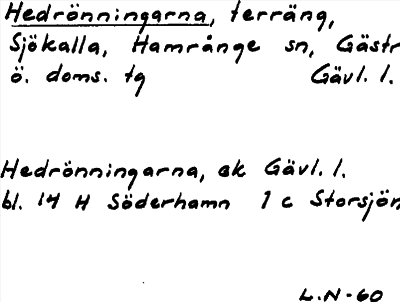 Hedrönningarna, terräng,
Sjökalla, Hamrånge sn, Gästr
ö. doms. tg Gävl. l.
Hedrönningarna, ek Gävl. l.
bl. 14 H Söderhamn 1 c Storsjön
L.N-60